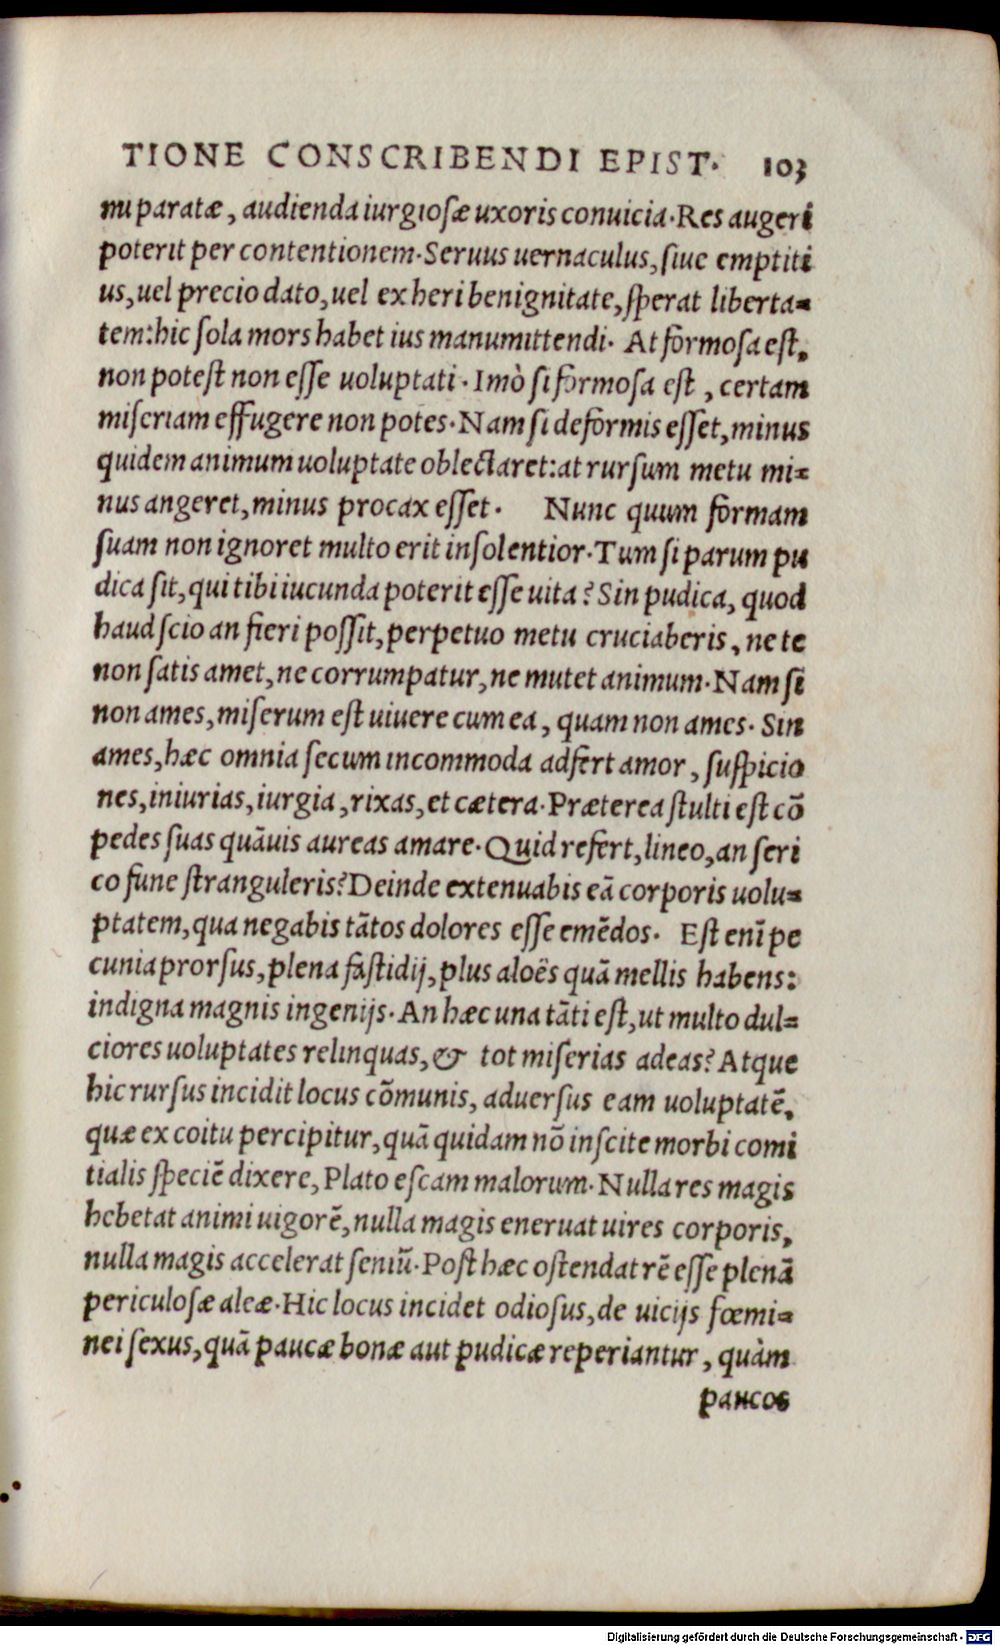 TIONE CONSCRIBENDI EPIST. 103
nu paratæ, audienda iurgioſæ uxoris conuicia. Res augeri
poterit per contentionem. Seruus uernaculus, ſiue emptiti
us, uel precio dato, uel ex heri benignitate, ſperat liberta=
tem: hic ſola mors habet ius manumittendi. At formoſa eſt,
non poteſt non eſſe uoluptati. Imò ſi formoſa eſt, certam
miſeriam effugere non potes. Nam ſi deformis eſſet, minus
quidem animum uoluptate oblectaret: at rurſum metu mi=
nus angeret, minus procax eſſet. Nunc quum formam
ſuam non ignoret multo erit inſolentior. Tum ſi parum pu
dica ſit, qui tibi iucunda poterit eſſe uita? Sin pudica, quod
haud ſcio an fieri poſſit, perpetuo metu cruciaberis, ne te
non ſatis amet, ne corrumpatur, ne mutet animum. Nam ſi
non ames, miſerum eſt uiuere cum ea, quam non ames. Sin
ames, hæc omnia ſecum incommoda adfert amor, ſuſpicio
nes, iniurias, iurgia, rixas, et cætera. Præterea ſtulti eſt cō
pedes ſuas quāuis aureas amare. Quid refert, lineo, an ſeri
co fune ſtranguleris? Deinde extenuabis eā corporis uolu=
ptatem, qua negabis tātos dolores eſſe emēdos. Eſt enī pe
cunia prorſus, plena faſtidij, plus aloës quā mellis habens:
indigna magnis ingenijs. An hæc una tāti eſt, ut multo dul=
ciores uoluptates relinquas, & tot miſerias adeas? Atque
hic rurſus incidit locus cōmunis, aduerſus eam uoluptatē,
quæ ex coitu percipitur, quā quidam nō inſcite morbi comi
tialis ſpeciē dixere, Plato eſcam malorum. Nulla res magis
hebetat animi uigorē, nulla magis eneruat uires corporis,
nulla magis accelerat ſeniū. Poſt hæc oſtendat rē eſſe plenā
periculoſæ aleæ. Hic locus incidet odioſus, de uicijs fœmi=
nei ſexus, quā paucæ bonæ aut pudicæ reperiantur, quàm
paucos
Digitalisierung gefördert durch die Deutsche Forschungsgemeinschaft - DFG